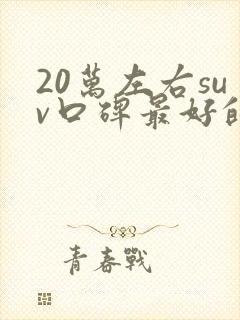 20萬左右su
v口碑最好的
青春戰